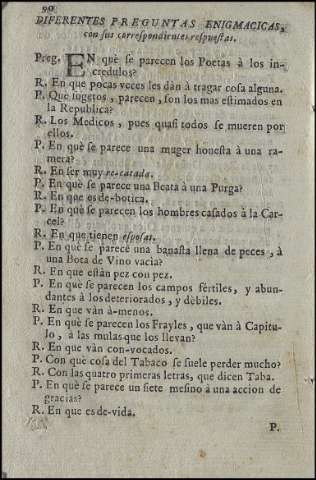 90
DIFERENTES PREGUNTAS ENIGMACICAS,
con sus correspondientes respuestas.
Preg. EN què se parecen los Poetas à los in-
credulos?
R. En que pocas veces les dàn à tragar cosa alguna.
P. Què sugetos, parecen, son los mas estimados en
la Republica?
R. Los Medicos, pues quasi todos se mueren por
ellos.
P. En què se parece una muger honesta à una ra-
mera?
R. En ser muy re-catada.
P. En què se parece una Beata à una Purga?
R. En que es de-botica.
P. En què se parecen los hombres casados à la Car-
cel?
R. En que tienen esposas.
P. En què se parece una banasta llena de peces, à
una Bota de Vino vacia?
R. En que estàn pez con pez.
P. En què se parecen los campos fértiles, y abun-
dantes à los deteriorados, y dèbiles.
R. En que vàn à-menos.
P. En què se parecen los Frayles, que vàn à Capitu-
lo, à las mulas que los llevan?
R. En que vàn con-vocados.
P. Con què cosa del Tabaco se suele perder mucho?
R. Con las quatro primeras letras, que dicen Taba.
P. En què se parece un siete mesino à una accion de
gracias?
R. En que es de-vida.
P.